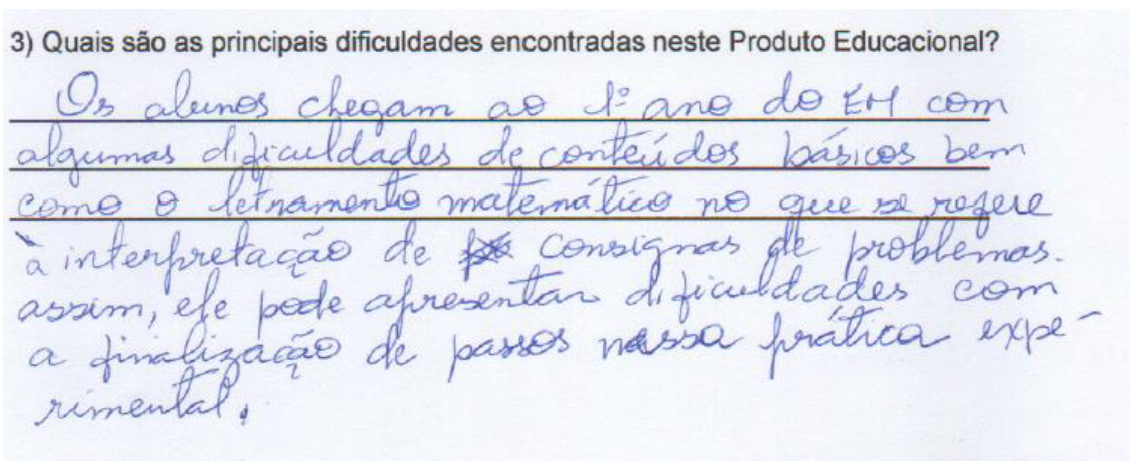 3) Quais são as principais dificuldades encontradas neste Produto Educacional?
Os alunos chegam ao 1º ano do EM com
algumas dificuldades de conteúdos básicos bem
como o letramento matemático no que se refere
à interpretação de consignas de problemas.
assim, ele pode apresentar dificuldades com
a finalização de passos nessa prática expe-
rimental.